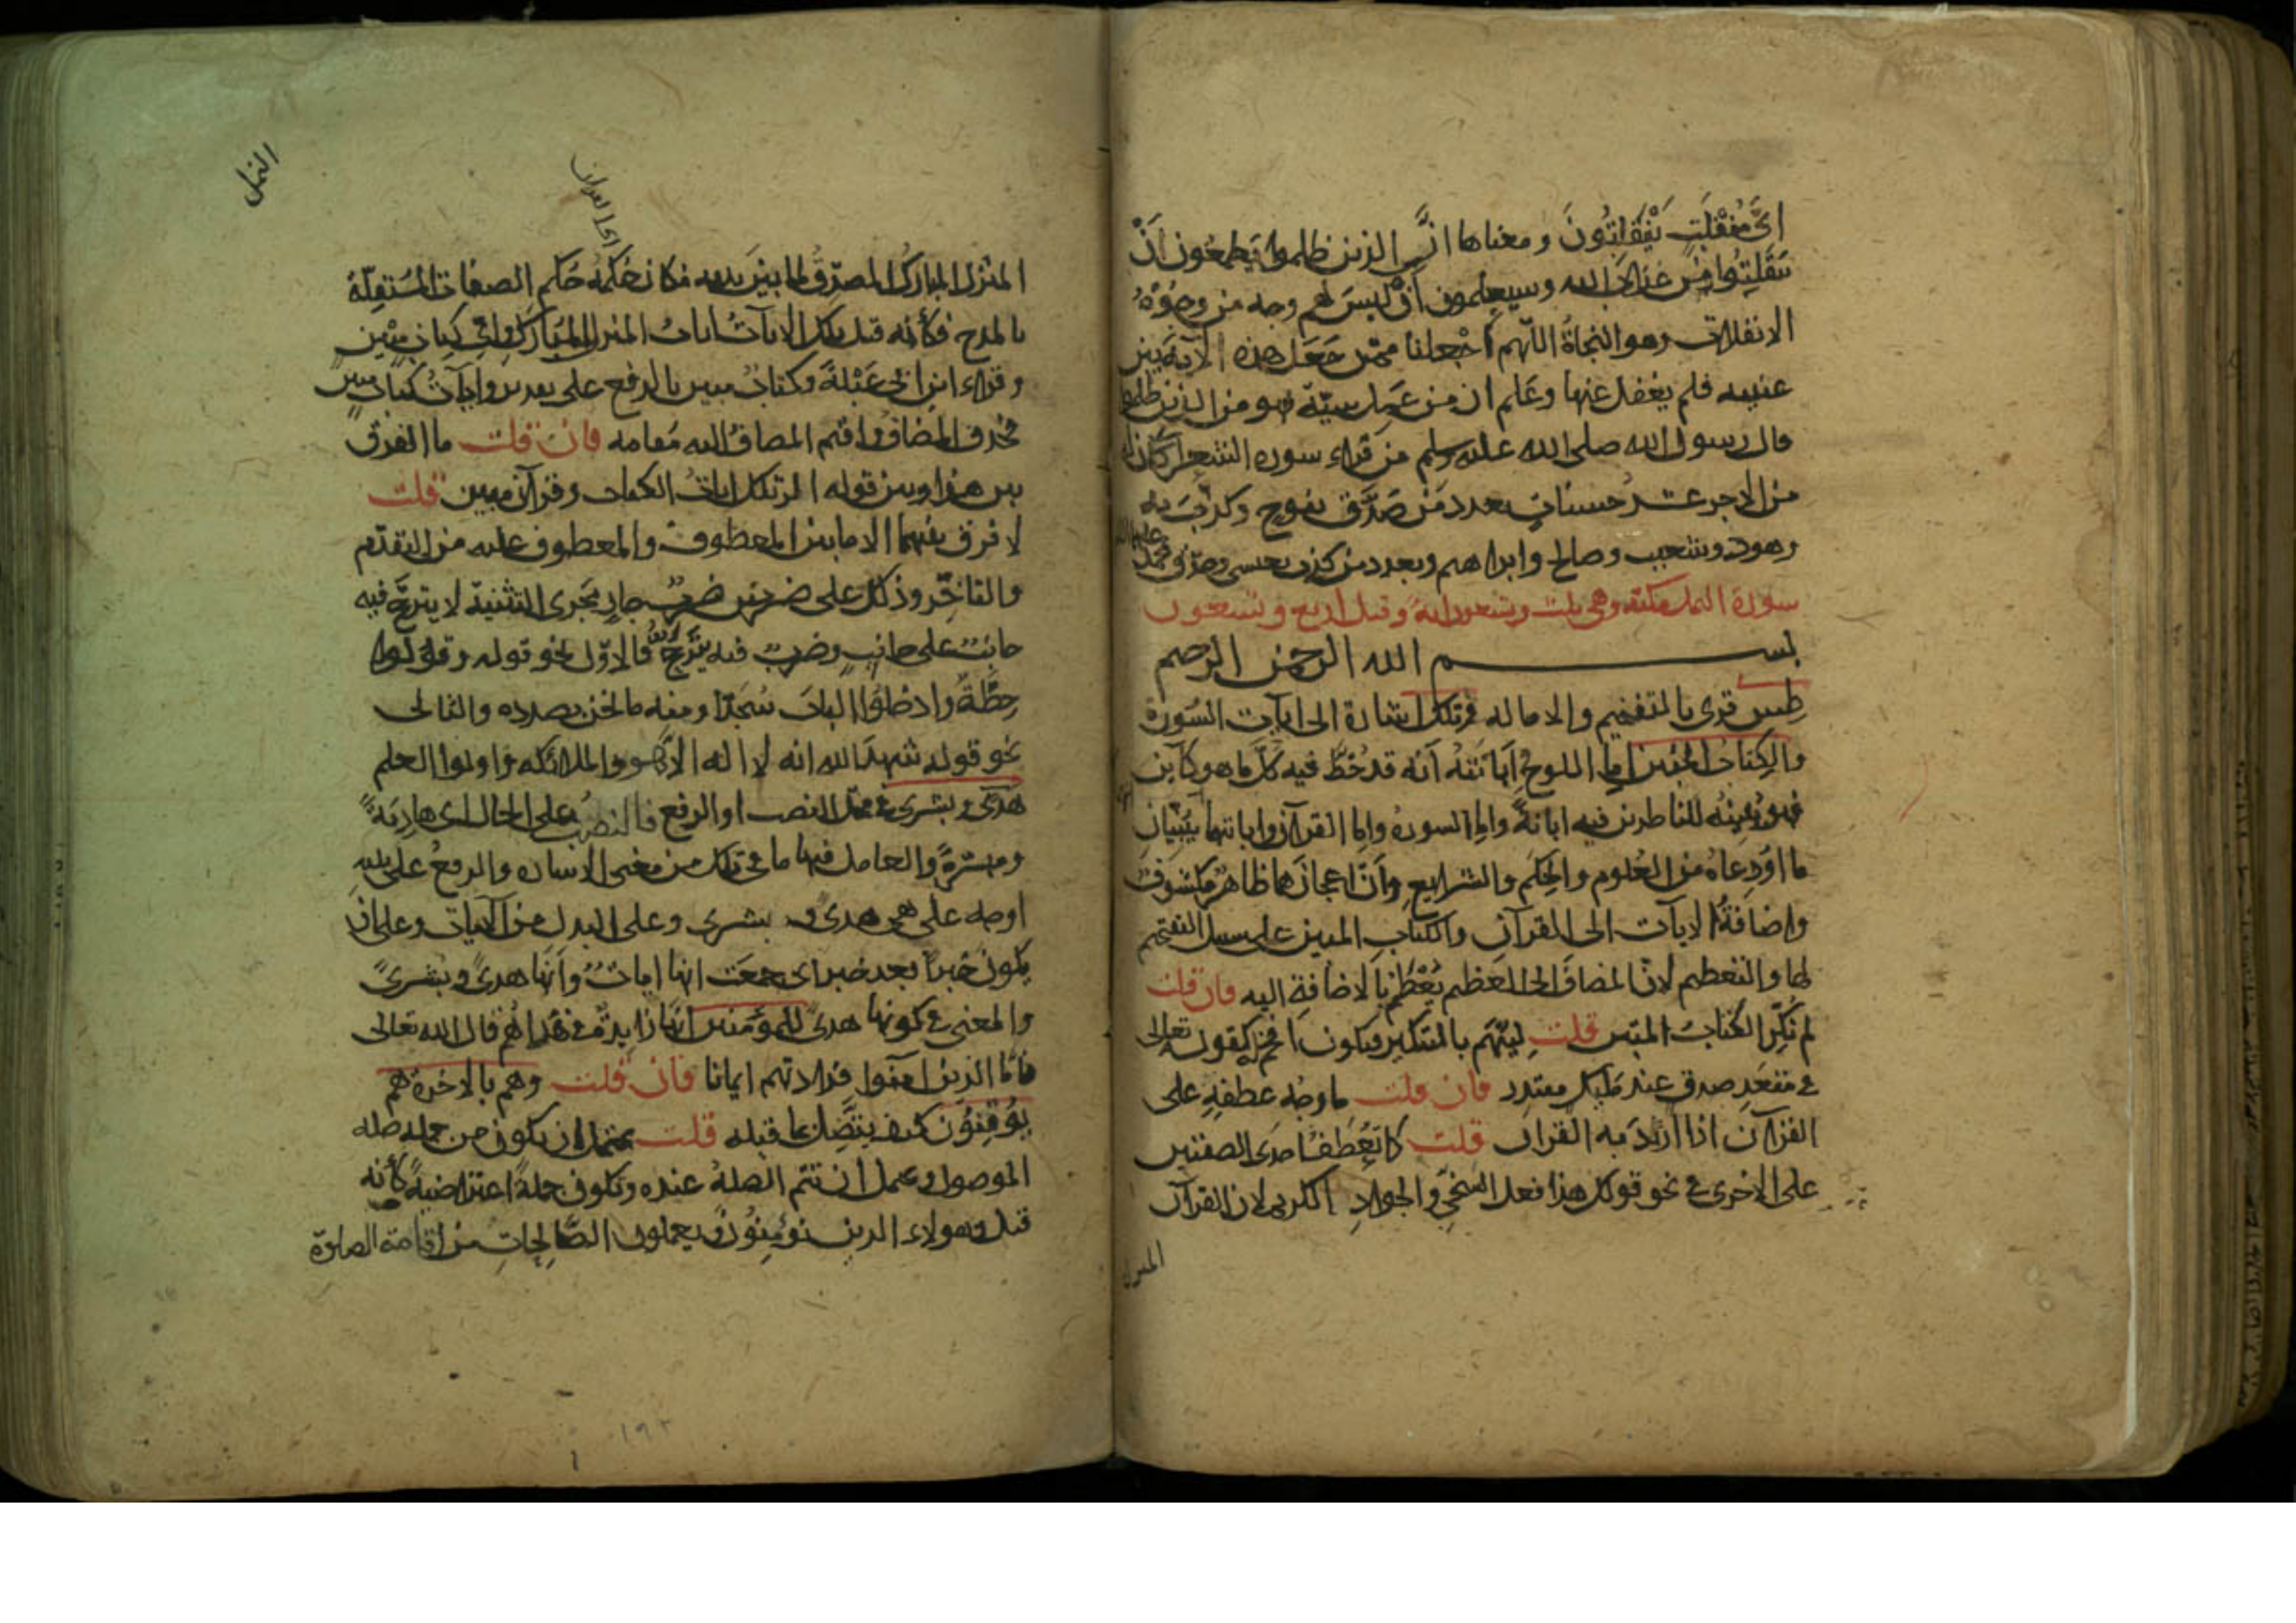 اىَّ مُنْفَلَتٍ يَنْفَلِتُونَ ومعناها انَّ الذين ظلموا يَطمعُون اَنْ
يَنفَلِتُوا مِن عذاب الله وسيعلمون اَنْ ليسَ لهم وجه من وجُوْهِ
الانفلات وهو النجاةُ اللّهم اجْعلنا ممّن جَعَل هذه الآية بين
عينيه فلم يغفل عنها وعَلم ان من عَمِل سيّة فهو من الذين ظلموا
قال رسول الله صلى الله عليه وسلم من قراء سورة الشعرا كان له
من الاجر عشر حسنات بعدد من صَدَّق بنوح وكذّب به
وهود وشعيب وصالح وابراهيم وبعدد من كذب بعيسى وصدّق محمد
سورة النمل مكية وهي ثلث وتسعون اية وقيل اربع وتسعون
بسم الله الرحمن الرحيم
طس قرى بالتفخيم والاماله وتلك اشارة الى ايآت السُورة
والكِتَابُ المُبين اما اللوحُ اِبَانَتُهُ اَنّه قد خُطَّ فيه كلّ ما هو كاين
فهو يُبينُه للناظرين فيه ابانةً واما السورةُ واما القرآن وابانتهما يُبيّنان
ما اوْدِعاهُ من العُلوم والحِكَم والشرايع وأنّ اعجازَهما ظاهرٌ مكشوفٌ
واضافةُ الايآت الى القرآن والكتاب المبين على سبيل التفخيم
لها والتعظيم لانّ المضاف الى العظيم يُعْظَم بالاضافة اليه فان قلت
لم نُكِّر الكتابُ المبين قلت ليُبْهَم بالتنكير فيكون افخم له كقوله تعالى
في مقعَدِ صدق عند مليك مقتدر فان قلت ما وجُه عطفِهِ على
القرآن اذا اُرِيْدَ به القرآن قلت كما تُعْطَفُ احدى الصفتين
على الاخرى في نحو قولك هذا فعل السّخيِّ والجوادِ الكريم لان القرآن
المنزل
النمل
المنزلَ المباركَ المصدّقُ لما بينَ يديه فكان حُكمُه حُكم الصفات المستقلّة
بالمدح فكأنه قيل تلك الايآتُ اياتُ المنزل المُبَارَك واىِّ كتابٍ مبين
وقراء ابن ابى عَبْلةَ وكتابٌ مبين بالرفع على تقدير وايآتُ كتابٍ مبين
فحُذِف المضافُ واُقيم المضافُ اليه مَقامه فان قلت ما الفرق
بين هذا وبين قوله الر تلك اياتُ الكتاب وقرآن مبين قلت
لا فرق بينهما الا ما بين المعطوف والمعطوف عليه من التقدّم
والتاخّر وذلك على ضربين ضربٌ جارٍ مجرى التثنية لا يترجّح فيه
جانبٌ على جانبٍ وضربٌ فيه يَترجّح فالاوّل نحو قوله وقولوا
حِطَّةٌ وادخلُوا البابَ سُجَّدًا ومنه ما نحن بصدده والثانى
نحو قوله شهدَ الله انه لا اله الا هو والملائكه واولوا العلم
هدًى وبشرى في محلّ النصب او الرفع فالنصبُ على الحال اى هادِيةً
ومبشّرةً والعامل فيها ما في تلك من معنى الاشارة والرفعُ على ثلثه
اوجه على هى هدى و بشرى وعلى البدل من الآيات وعلى ان
يكونَ خبراً بعد خبر اى جمعَت انها اياتٌ وأنّها هدىً وبشرىً
والمعنى في كونها هدىً للمؤمنين انها زايدةٌ في هُداهُم قال الله تعالى
فامّا الذين آمنوا فزادتهم ايمانا فان قلت وهم بالاخرة هم
يُوْقِنُوْن كيف يتَّصل بما قبله قلت يحتمل ان يكون من جمله صله
الموصول ويحتمل ان تتم الصلهُ عنده ويكون جملةً اعتراضيةً كأنه
قيل وهولاء الذين يُؤْمِنُوْنَ ويعملون الصَّالِحَاتِ من اقامة الصلوة
١٩٢